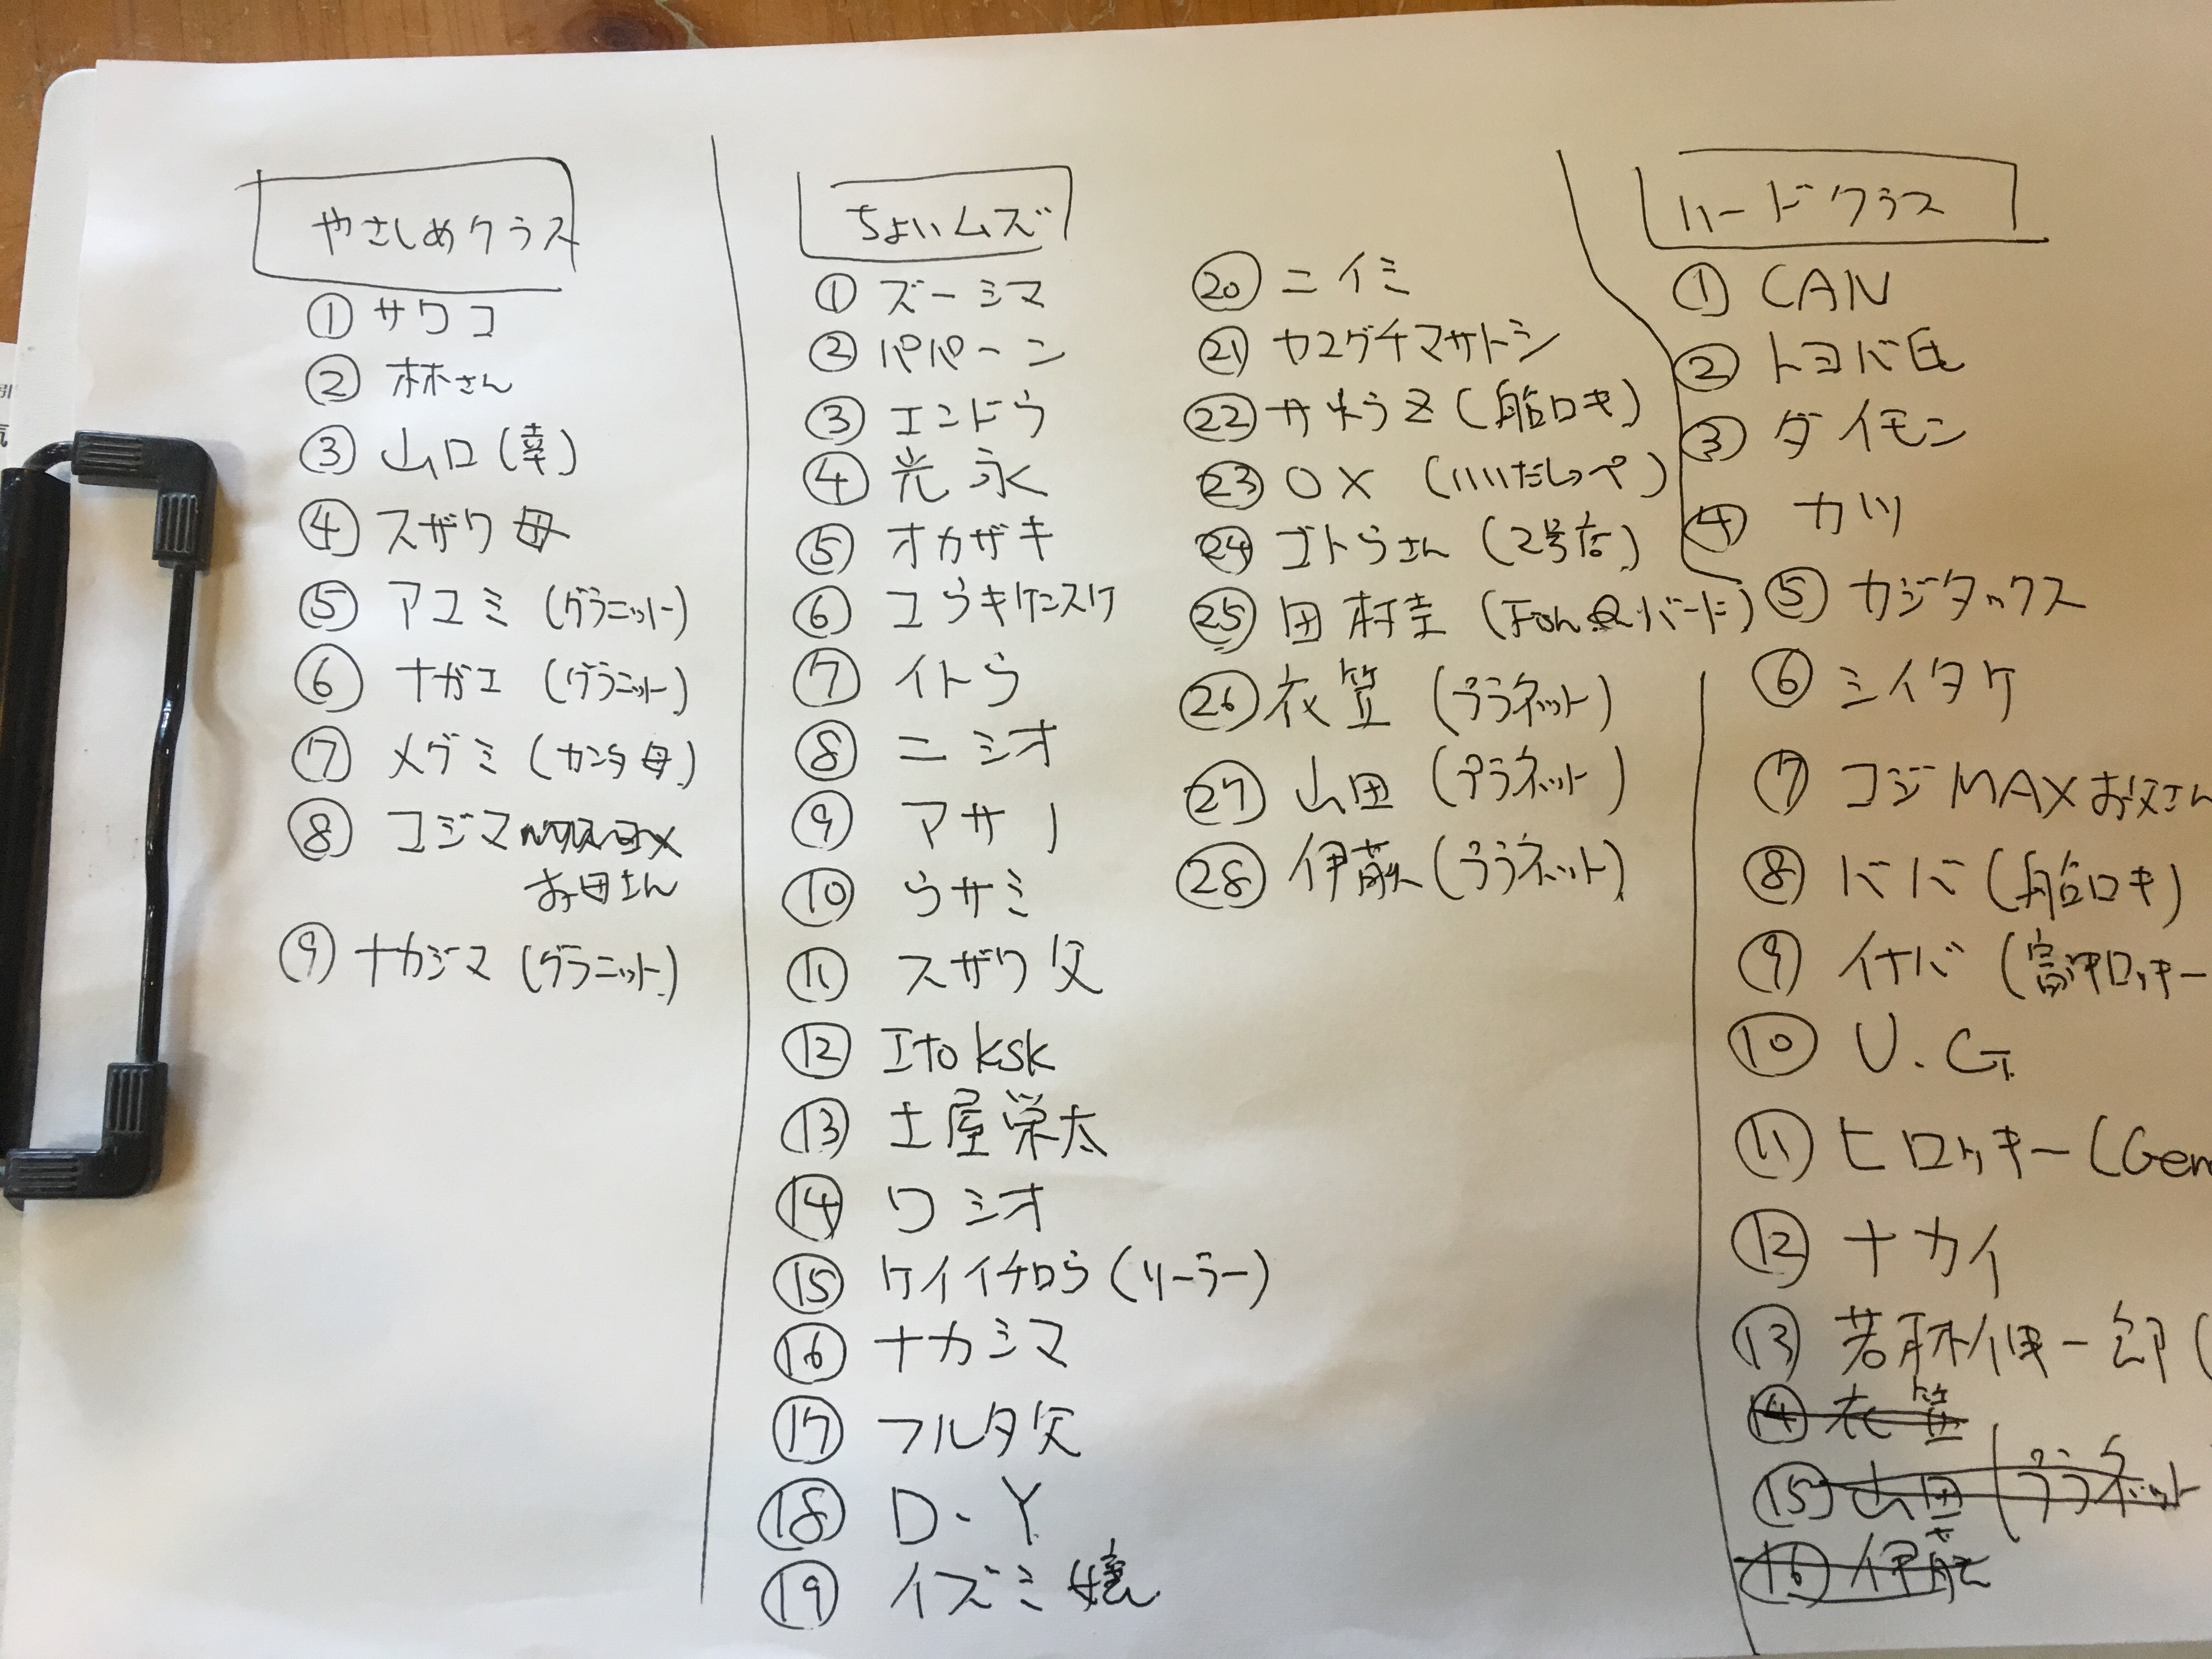 やさしめクラス
① サワコ
② 林さん
③ 山口(幸)
④ スザワ母
⑤ アユミ (グラニット)
⑥ ナガエ (グラニット)
⑦ メグミ (カンタ母)
⑧ コジマ
お母さん
⑨ ナカジマ (グラニット)
ちょいムズ
① ズーシマ
② パパーン
③ エンドウ
④ 光永
⑤ オカザキ
⑥ コウキケンスケ
⑦ イトウ
⑧ ニシオ
⑨ アサノ
⑩ ウサミ
⑪ スザワ父
⑫ Ito ksk
⑬ 土屋栄太
⑭ ワシオ
⑮ ケイイチロウ (リーラー)
⑯ ナカシマ
⑰ フルタ父
⑱ D.Y
⑲ イズミ嬢
⑳ ニイミ
㉑ ヤマグチマサトシ
㉒ (船ロキ)
㉓ OX (いいだしっぺ)
㉔ ゴトウさん (2号店)
㉕ 田村圭
㉖ 衣笠 (プラネット)
㉗ 山田 (プラネット)
㉘ 伊藤 (プラネット)
ハードクラス
① CAN
② トヨバ氏
③ ダイモン
④ カツ
⑤ カジタックス
⑥ シイタケ
⑦ コジMAXお父さん
⑧ ババ (船ロキ)
⑨ イナバ (
⑩ U.G.
⑪ ヒロッキー (Gem
⑫ ナカイ
⑬ 若林伸一郎 (
⑭ 衣笠
⑮ 山田 (プラネット
⑯ 伊藤